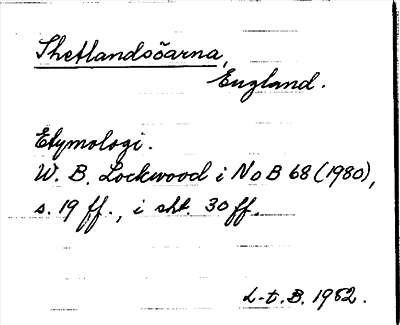 Shetlandsöarna,
England.
Etymologi.
W. B. Lockwood i NoB 68 (1980),
s. 19 ff., i sht. 30 ff.
L-t. B. 1982.